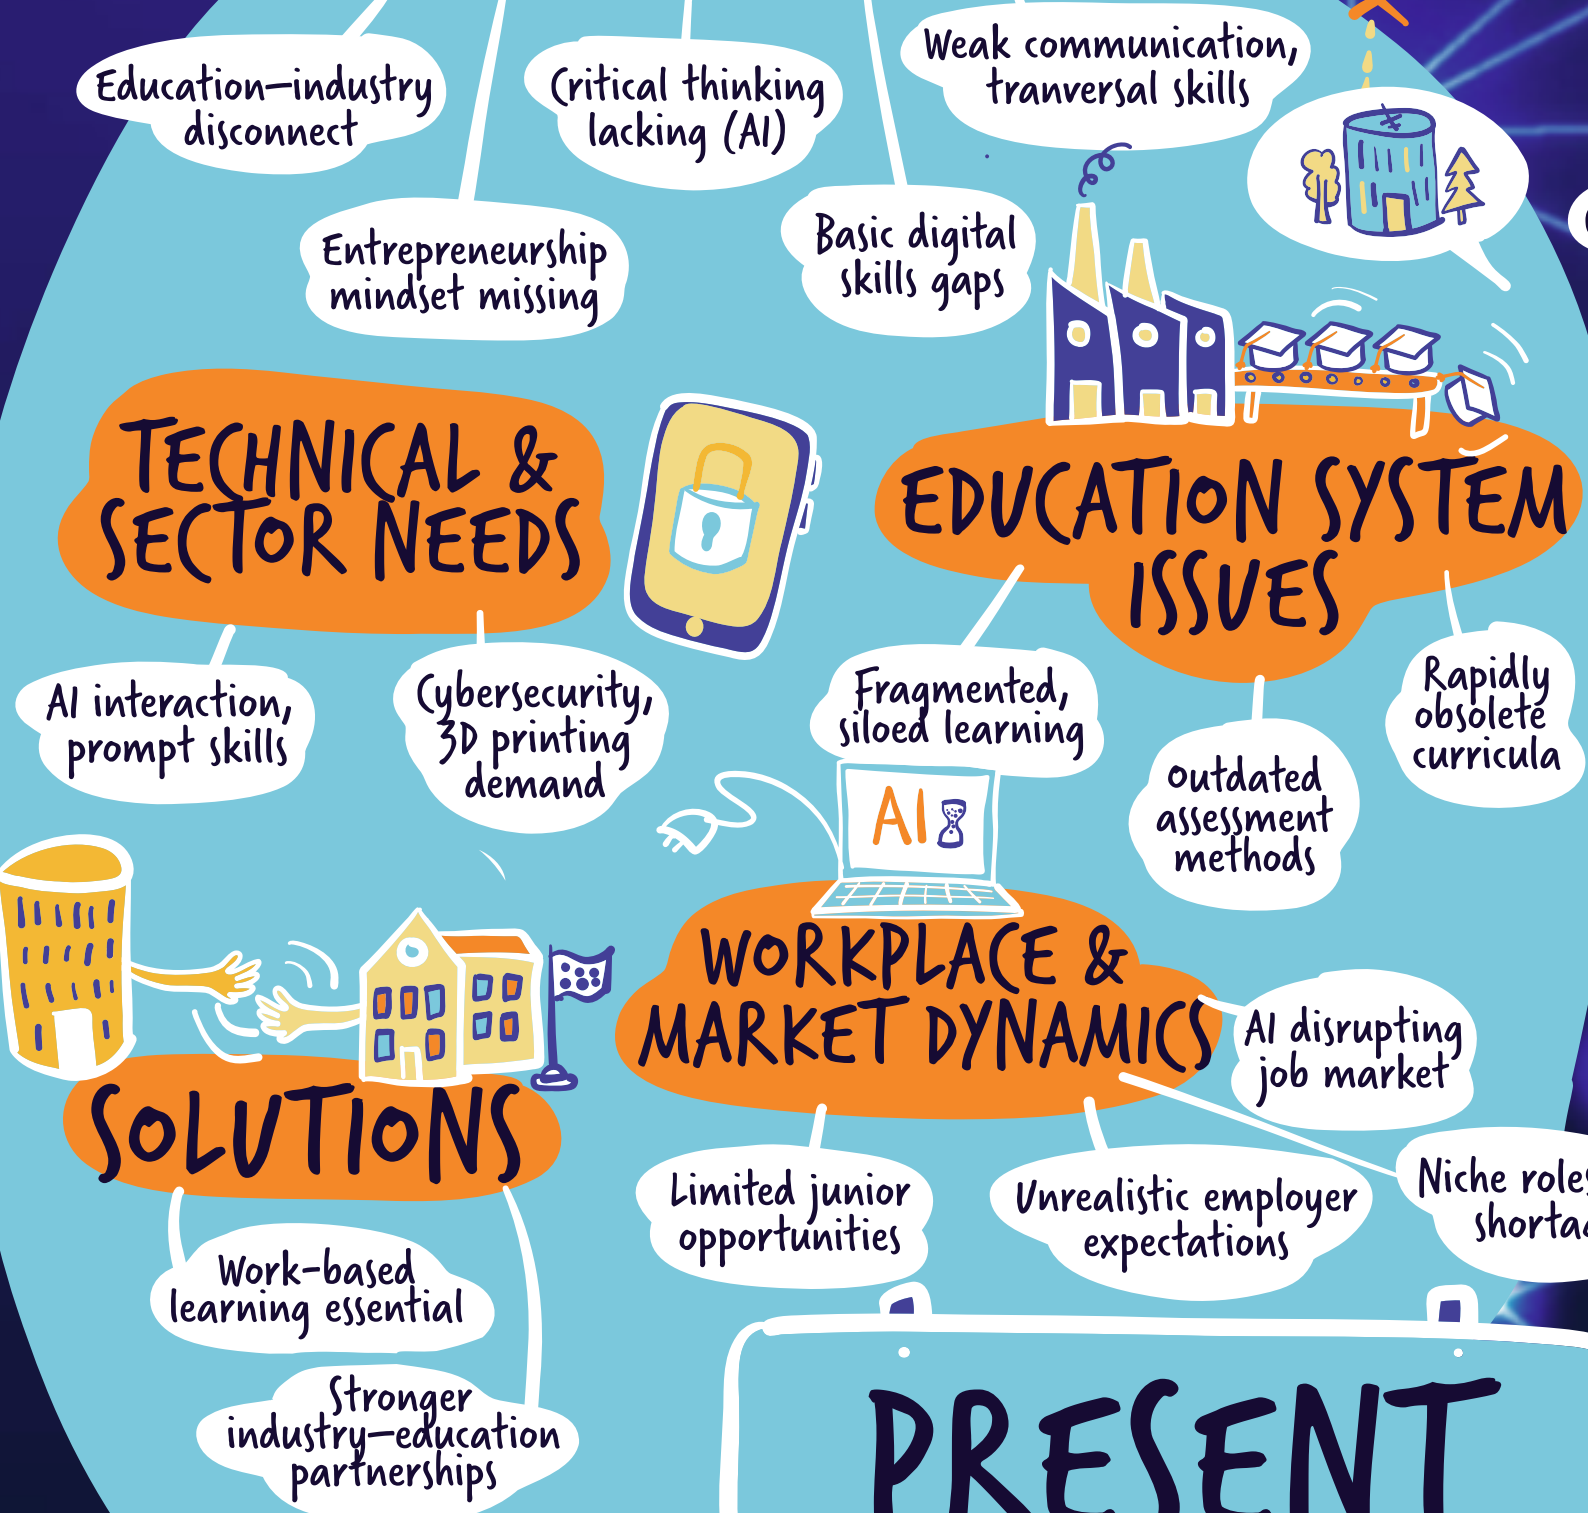 Education—industry
disconnect
Critical thinking
lacking (AI)
Weak communication,
tranversal skills
Entrepreneurship
mindset missing
Basic digital
skills gaps
TECHNICAL &
SECTOR NEEDS
AI interaction,
prompt skills
Cybersecurity,
3D printing
demand
EDUCATION SYSTEM
ISSUES
Fragmented,
siloed learning
Outdated
assessment
methods
Rapidly
obsolete
curricula
AI
WORKPLACE &
MARKET DYNAMICS
AI disrupting
job market
Limited junior
opportunities
Unrealistic employer
expectations
Niche
SOLUTIONS
Work-based
learning essential
Stronger
industry—education
partnerships
PRESENT